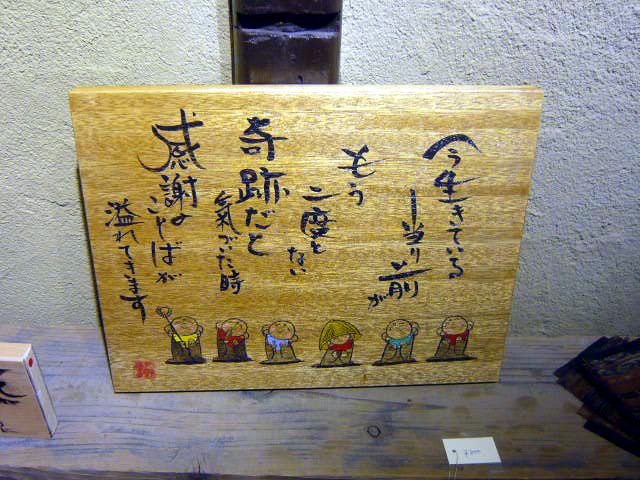 今生きている
当り前が
もう
二度と
ない
奇跡だと
氣づいた時
感謝の
ことばが
溢れてきます